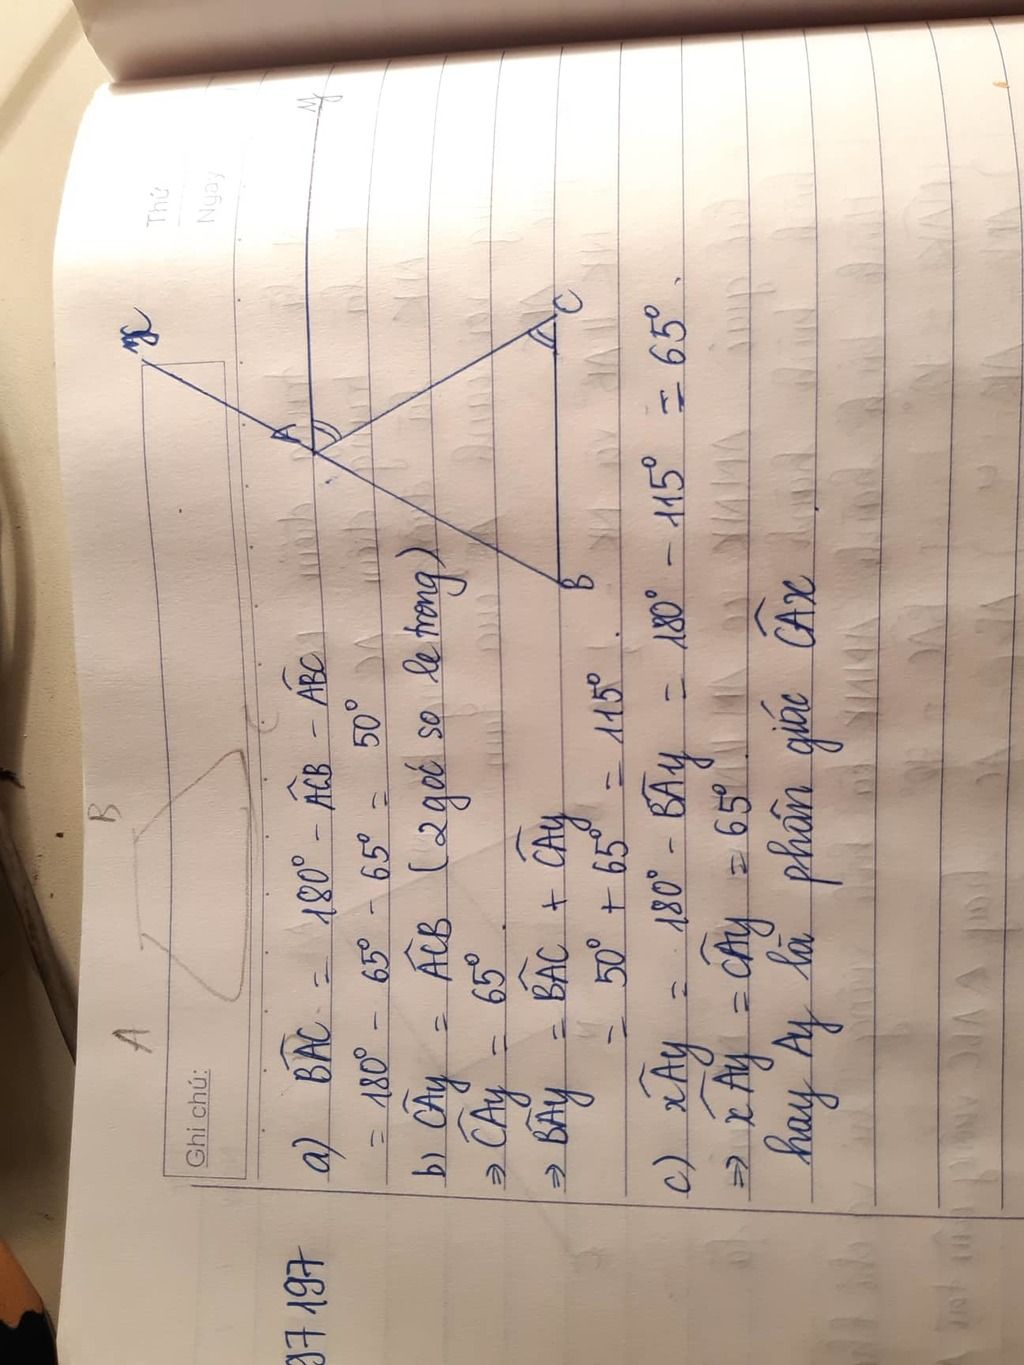 Thứ
Ngày
Ghi chú:
A
B
x
A
y
B
C
97 197
a) BAC = 180° - ACB - ABC
= 180° - 65° - 65° = 50°
b) CAy = ACB (2 góc so le trong)
⇒ CAy = 65°.
⇒ BAy = BAC + CAy
= 50° + 65° = 115°.
c) xAy = 180° - BAy = 180° - 115° = 65°.
⇒ xAy = CAy = 65°.
hay Ay là phân giác CAx